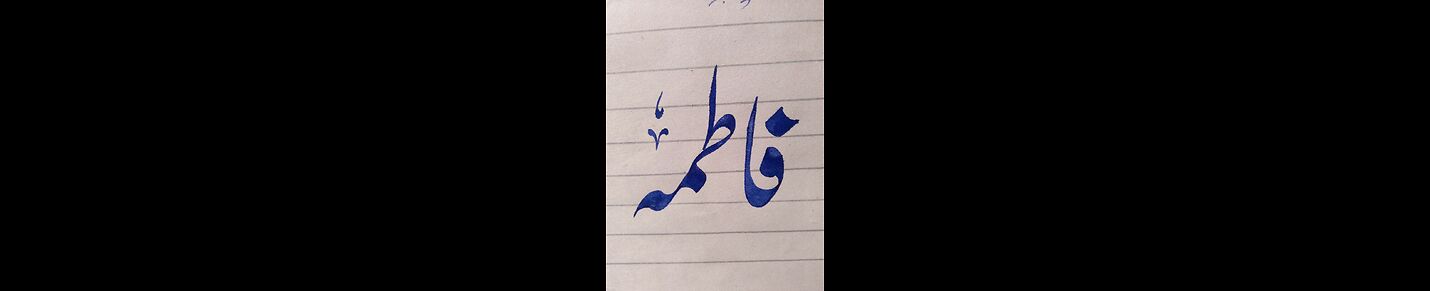 فاطمہ